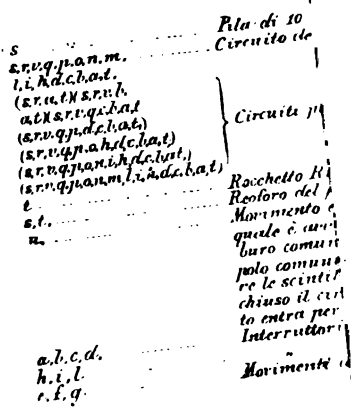 s ... Pila di 10
s.r.v.q.p.o.n.m. ... Circuito de
l.i.h.d.c.b.a.t.
(s.r.u.t)(s.r.v.b.
a.t)(s.r.v.q.i.b.a.t
(s.r.v.q.p.d.c.b.a.t.)
(s.r.v.q.p.o.h.d.c.b.a.t.)
(s.r.v.q.p.o.n.i.h.d.c.b.a.t.)
(s.r.v.q.p.o.n.m.l.i.h.d.c.b.a.t)
Circuiti
t ... Rocchetto R
s.t. ... Reoforo del
n. ... Movimento
quale è
buro comun
polo comune
re le scintil
chiuso il
to entra per
Interruttori
a.b.c.d.
h.i.l. ... Movimenti
e.f.g.